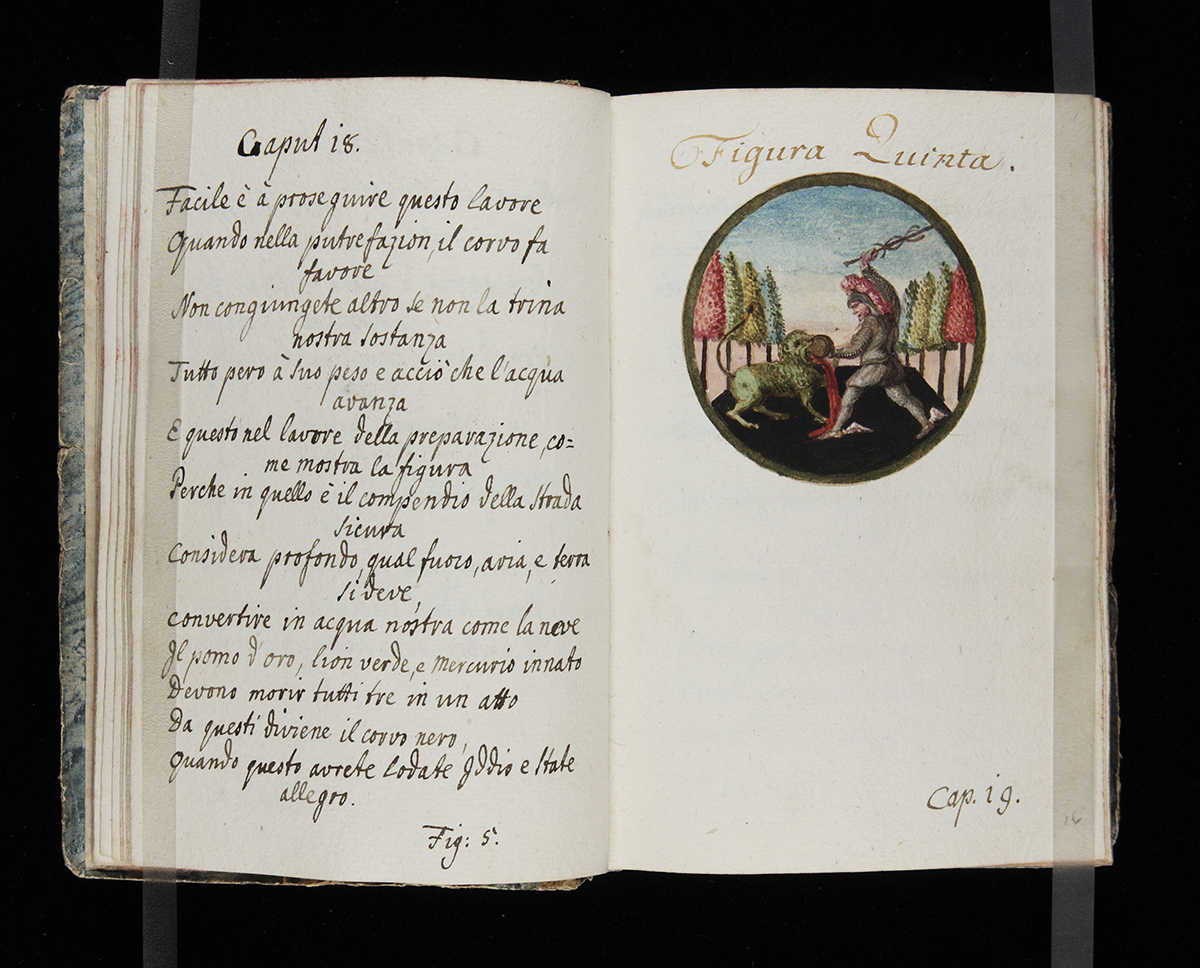 Caput 18.
Facile è à proseguire questo lavore
Quando nella putrefazion, il corvo fa
favore
Non congiungete altro se non la trina
nostra sostanza
Tutto pero à suo peso e acciò che l'acqua
avanza
E questo nel lavore della preparazione, co=
me mostra la figura
Perche in quello è il compendio della strada
sicura
Considera profondo, qual fuoco, aria, e terra
si deve,
convertire in acqua nostra come la neve
Il pomo d'oro, lion verde, e mercurio innato
Devono morir tutti tre in un atto
Da questi diviene il corvo nero,
Quando questo avrete lodate Iddio e state
allegro.
Fig: 5.
Figura Quinta.
Cap. 19.
16